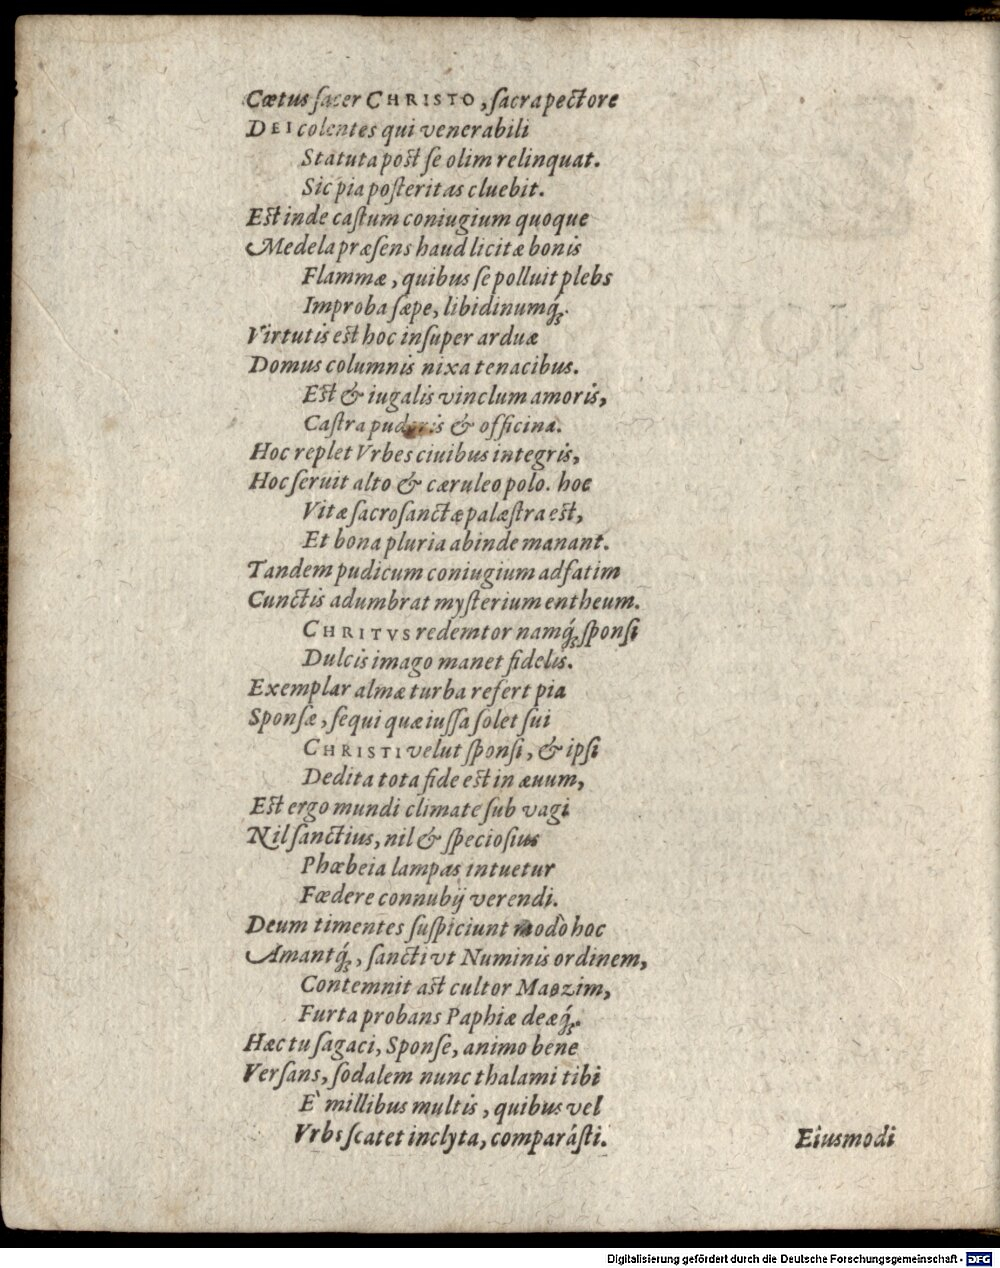 Cœtus ſacer CHRISTO, ſacra pectore
DEI colentes qui venerabili
Statuta poſt ſe olim relinquat.
Sic pia poſteritas cluebit.
Eſt inde caſtum coniugium quoque
Medela præſens haud licitæ bonis
Flammæ, quibus ſe polluit plebs
Improba ſæpe, libidinumq́ꝫ.
Virtutis eſt hoc inſuper arduæ
Domus columnis nixa tenacibus.
Eſt & iugalis vinclum amoris,
Caſtra pudoris & officina.
Hoc replet Vrbes ciuibus integris,
Hoc ſeruit alto & cæruleo polo. hoc
Vitæ ſacroſanctæ palæſtra eſt,
Et bona pluria abinde manant.
Tandem pudicum coniugium adfatim
Cunctis adumbrat myſterium entheum.
CHRITVS redemtor namq́ꝫ ſponſi
Dulcis imago manet fidelis.
Exemplar almæ turba refert pia
Sponſæ, ſequi quæ iuſſa ſolet ſui
CHRISTI velut ſponſi, & ipſi
Dedita tota fide eſt in æuum,
Eſt ergo mundi climate ſub vagi
Nil ſanctius, nil & ſpecioſius
Phœbeia lampas intuetur
Fœdere connubij verendi.
Deum timentes ſuſpiciunt modò hoc
Amantq́ꝫ, ſancti vt Numinis ordinem,
Contemnit aſt cultor Maozim,
Furta probans Paphiæ deæq́ꝫ.
Hæc tu ſagaci, Sponſe, animo bene
Verſans, ſodalem nunc thalami tibi
E` millibus multis, quibus vel
Vrbs ſcatet inclyta, comparáſti.
Eiusmodi
Digitalisierung gefördert durch die Deutsche Forschungsgemeinschaft - DFG